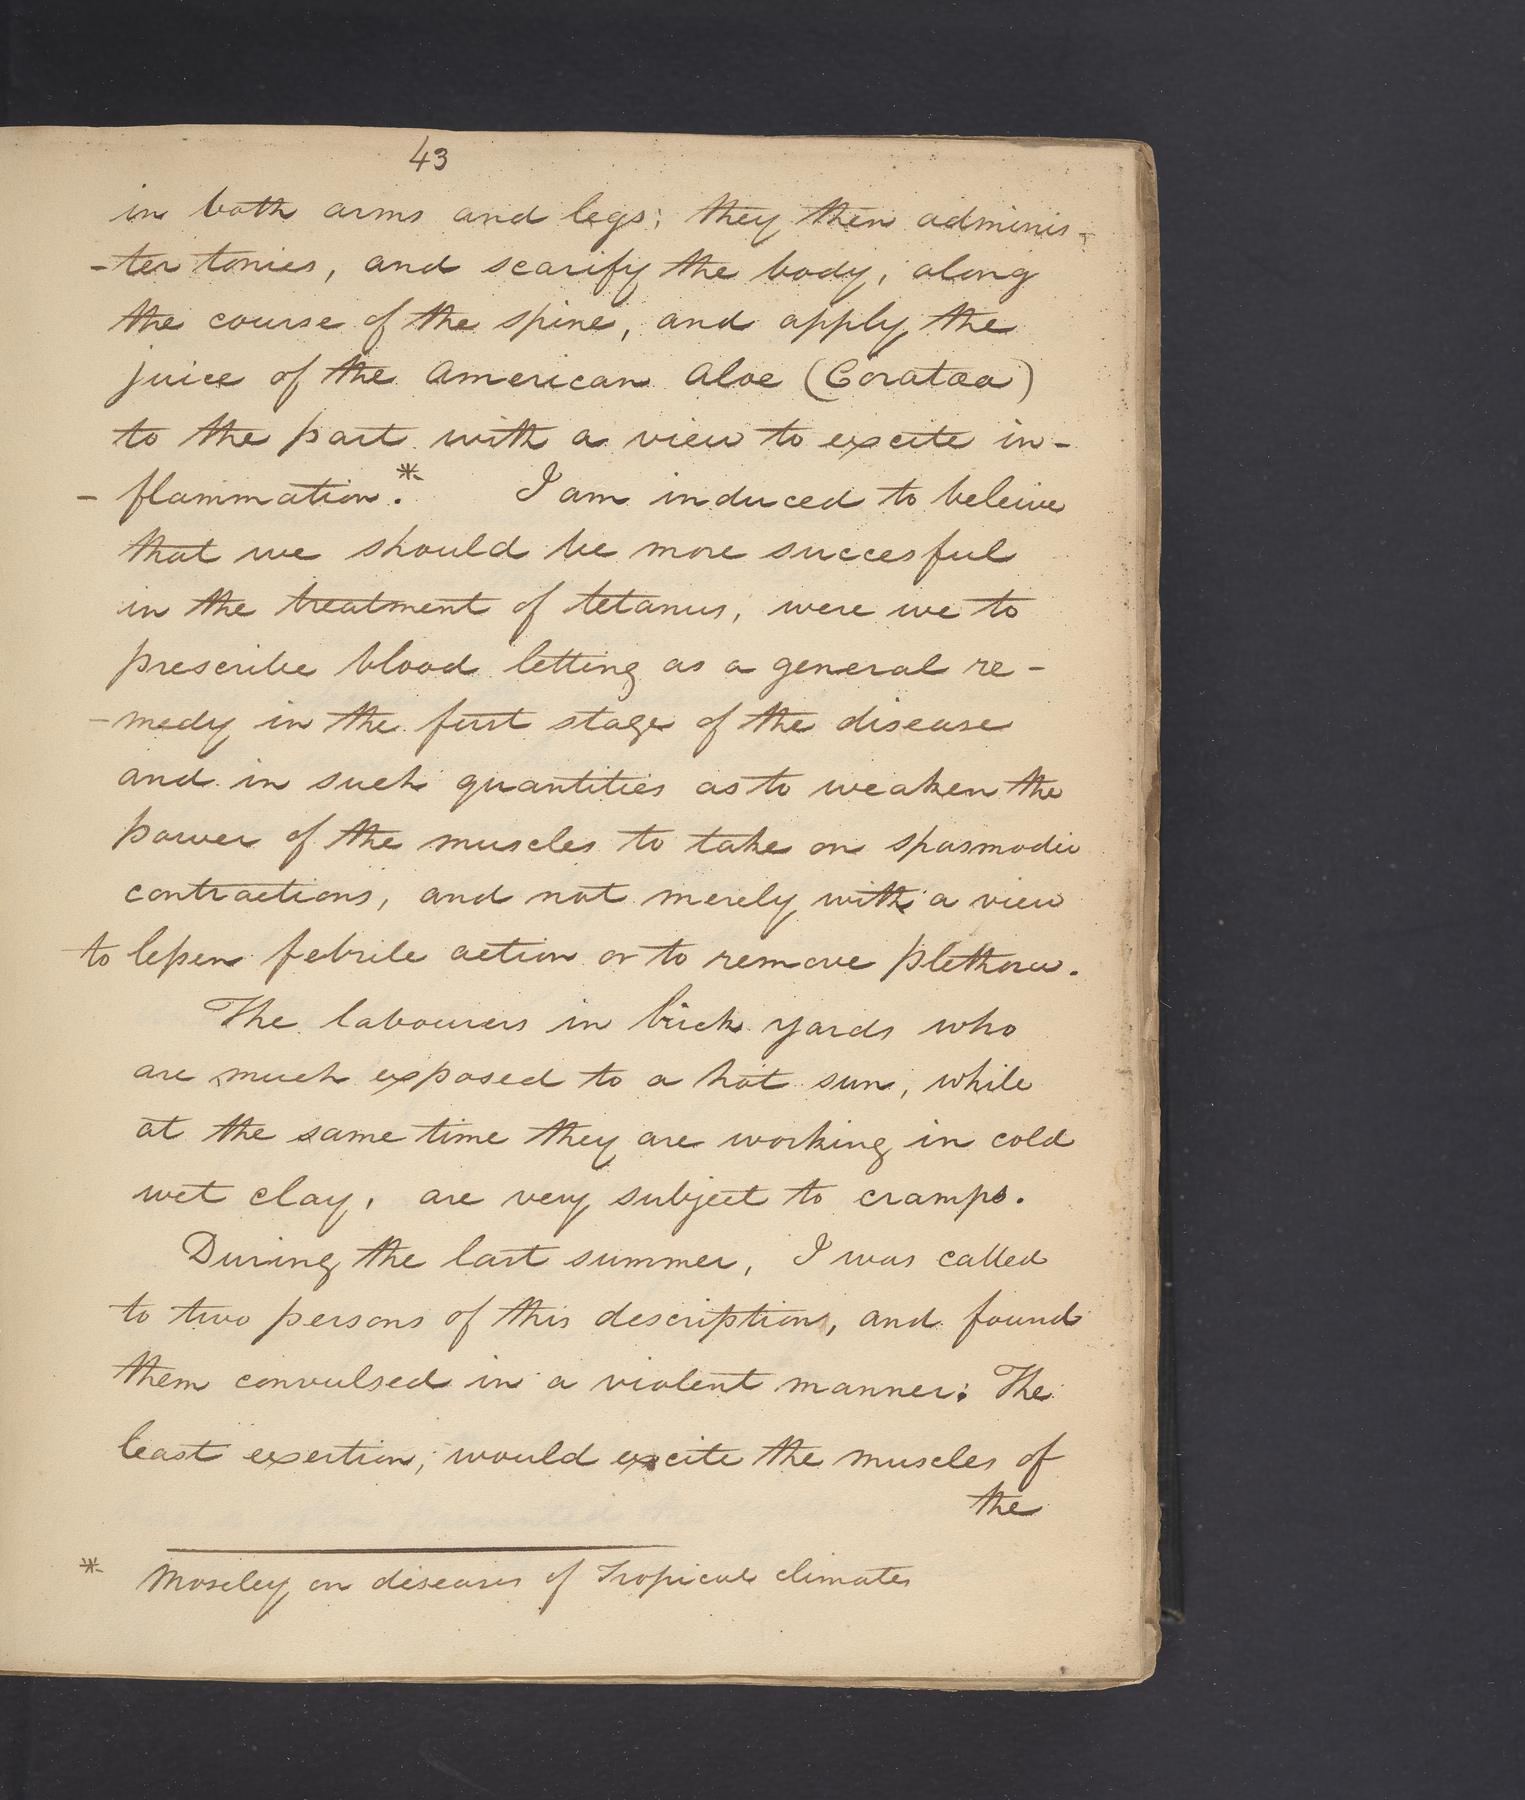 43
in both arms and legs; they then adminis-
-ter tonics, and scarify the body, along
the course of the spine, and apply the
juice of the American Aloe (Corataa)
to the part with a view to excite in-
- flammation.* I am induced to beleive
that we should be more succesful
in the treatment of tetanus, were we to
prescribe blood letting as a general re-
-medy in the first stage of the disease
and in such quantities as to weaken the
power of the muscles to take on spasmodic
contractions, and not merely with a view
to lessen febrile action or to remove plethora.
The labourers in brick yards who
are much exposed to a hot sun, while
at the same time they are working in cold
wet clay, are very subject to cramps.
During the last summer, I was called
to two persons of this description, and found
them convulsed in a violent manner: The
least exertion, would excite the muscles of
the
* Moseley on diseases of Tropical climates